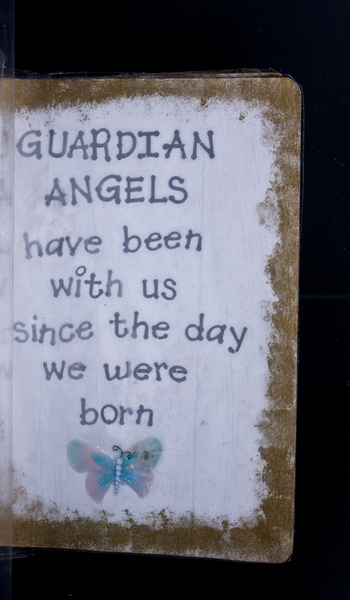 GUARDIAN
ANGELS
have been
with us
since the day
we were
born